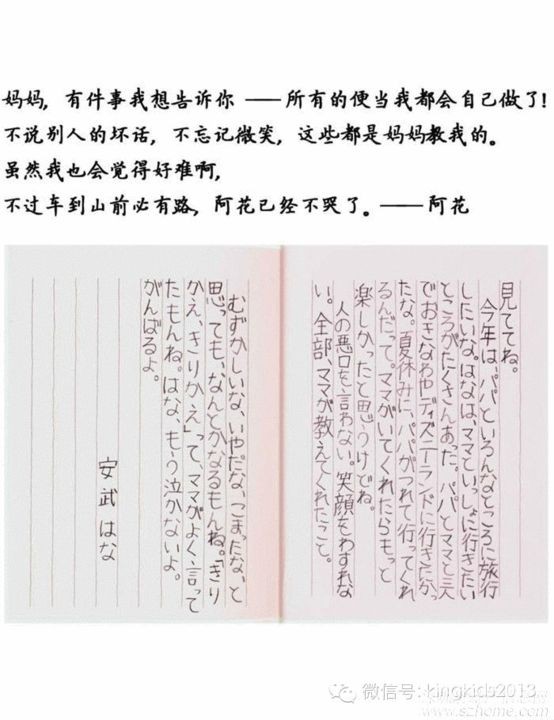 妈妈，有件事我想告诉你 —— 所有的便当我都会自己做了！
不说别人的坏话，不忘记微笑，这些都是妈妈教我的。
虽然我也会觉得好难啊，
不过车到山前必有路，阿花已经不哭了。—— 阿花
見ててね。
今年は、パパといろんなところに旅行
したいな。はなは、ママといっしょに行きたい
ところがたくさんあった。パパとママと三人
でおきなわやディズニーランドに行きたかっ
たな。夏休みに、パパがつれて行ってくれ
るんだって。ママがいてくれたらもっと
楽しかったと思うけどね。
人の悪口を言わない。笑顔をわすれな
い。全部、ママが教えてくれたこと。
むずかしいな、いやだな、こまったな、と
思っても、なんとかなるもんね。「きり
かえ、きりかえ」って、ママがよく言って
たもんね。はな、もう泣かないよ。
がんばるよ。
安武はな
微信号: kingkidb2013
www.szhome.com